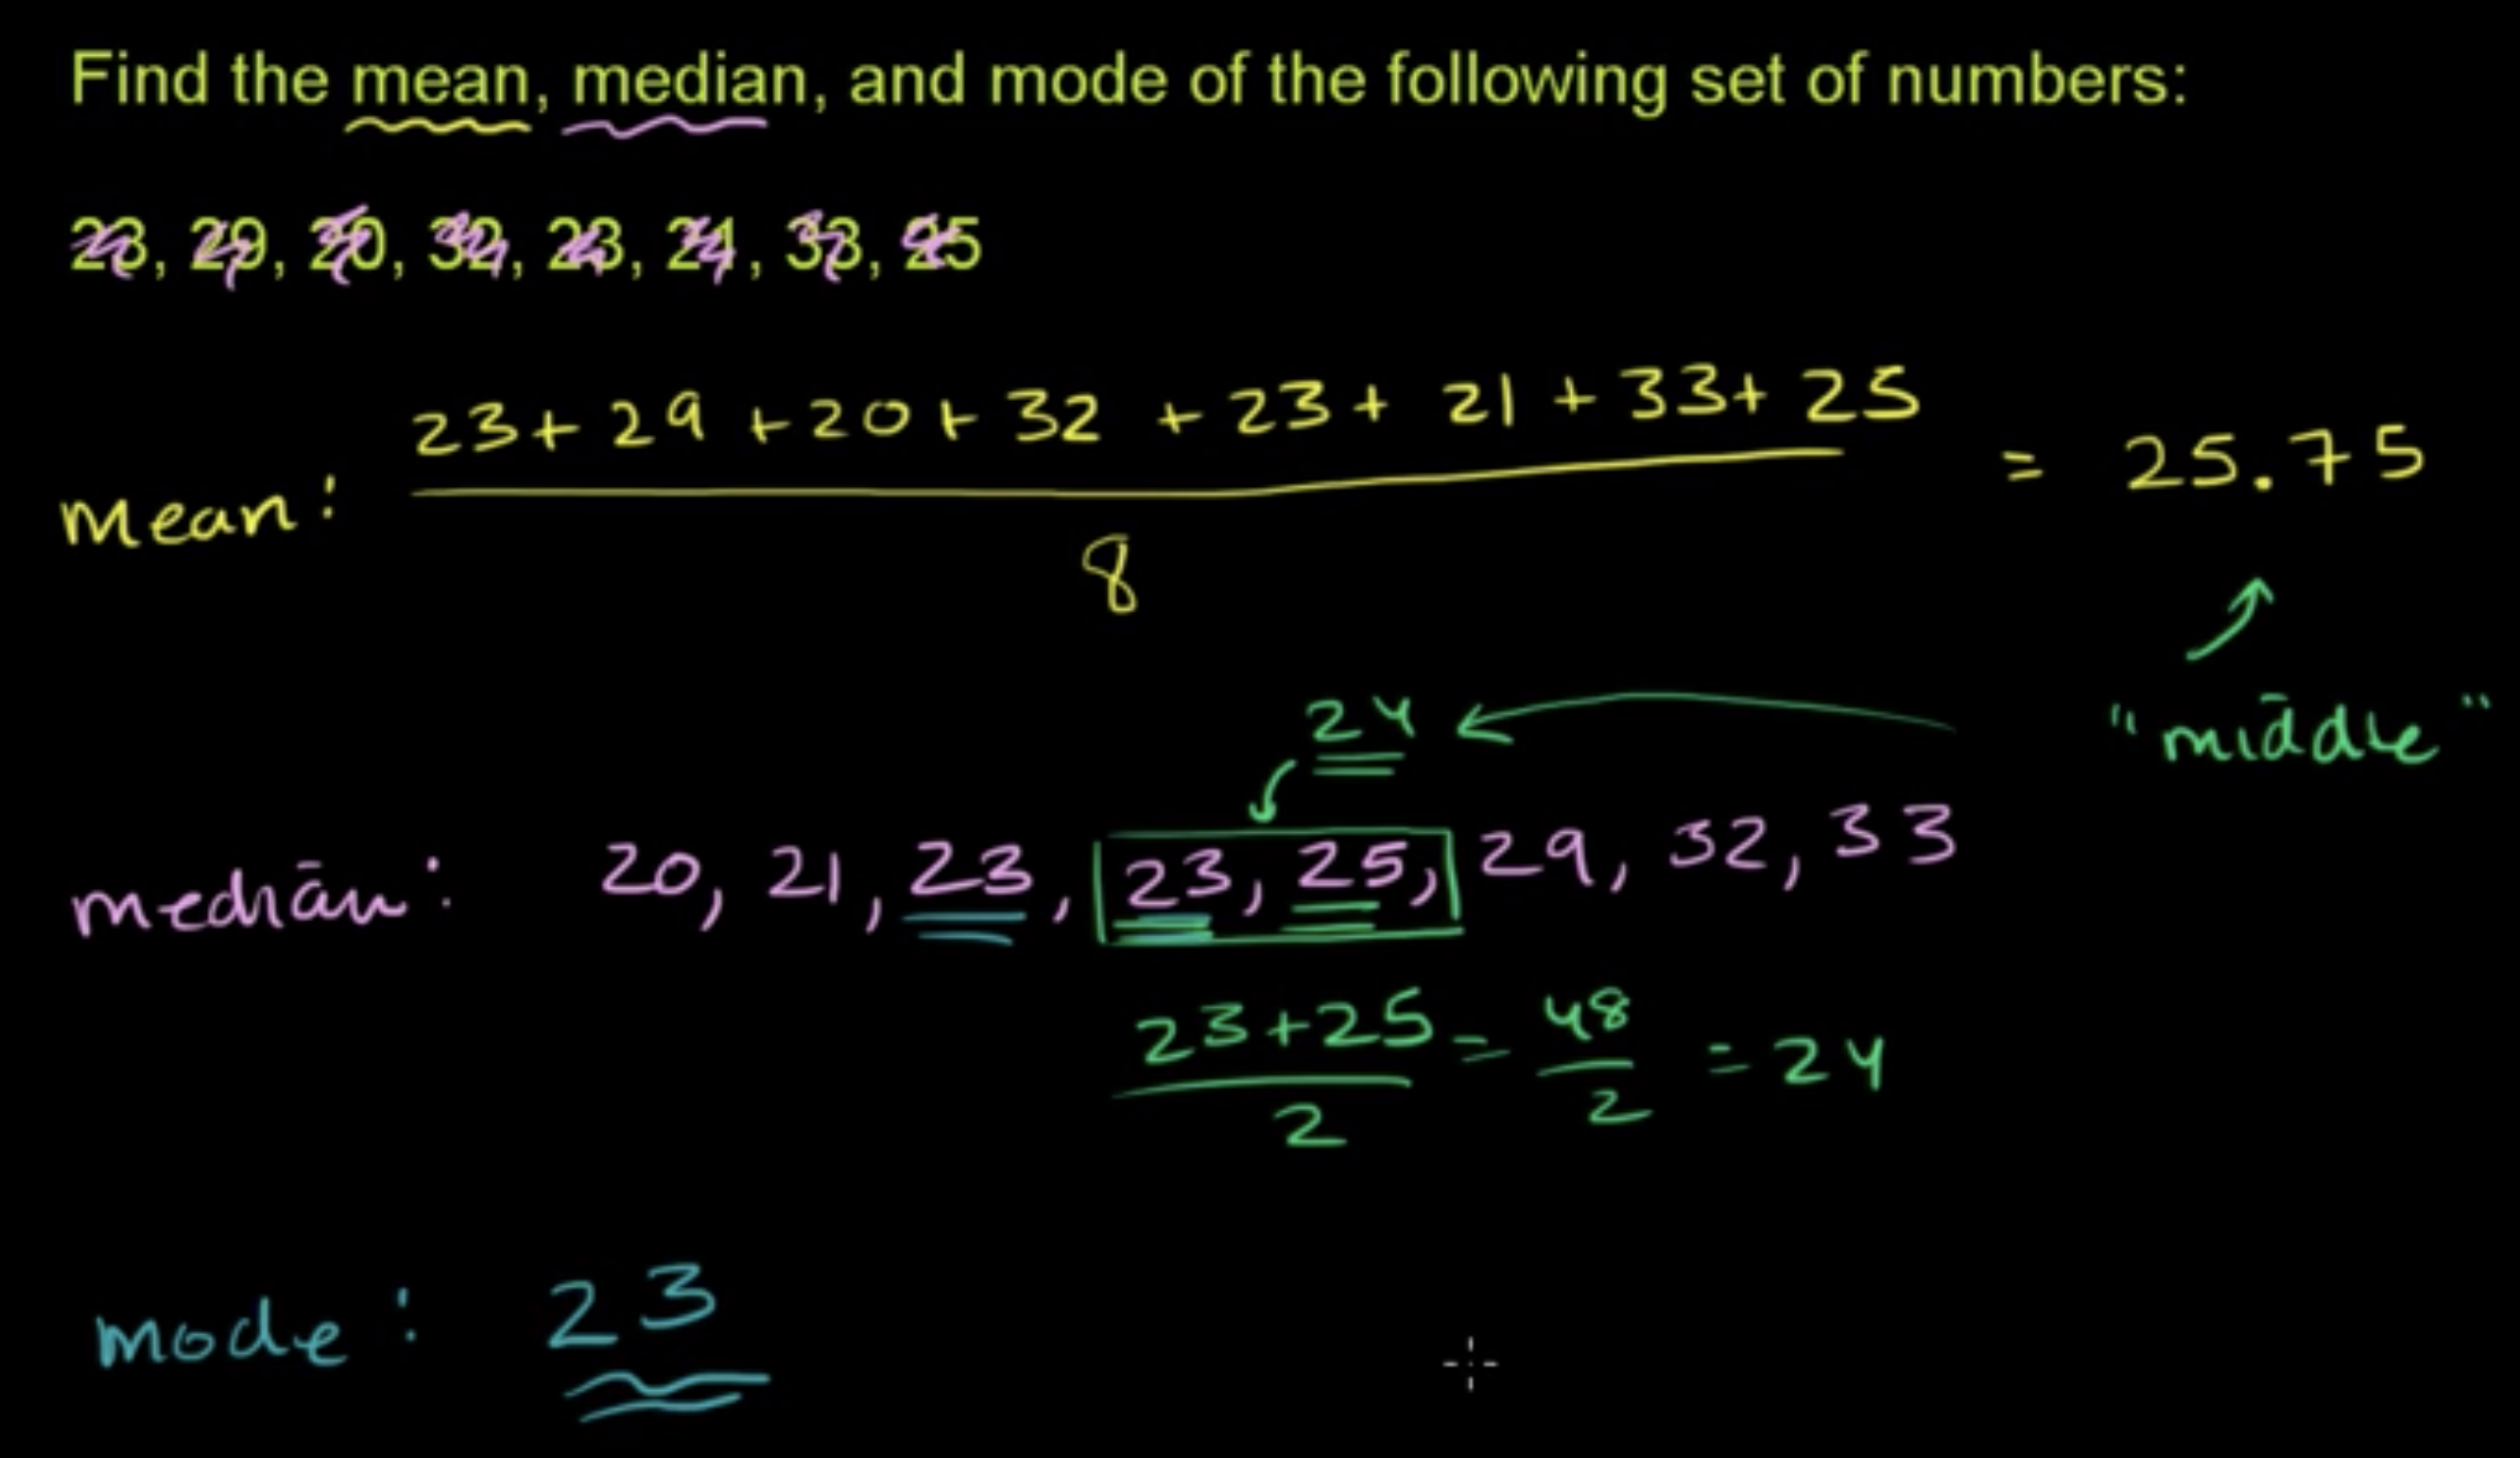 Find the mean, median, and mode of the following set of numbers:
23, 29, 20, 32, 23, 21, 33, 25
23 + 29 + 20 + 32 + 23 + 21 + 33 + 25
mean: = 25.75
8
24 "middle"
median: 20, 21, 23, 23, 25, 29, 32, 33
23+25 = 48 = 24
2 2
mode: 23